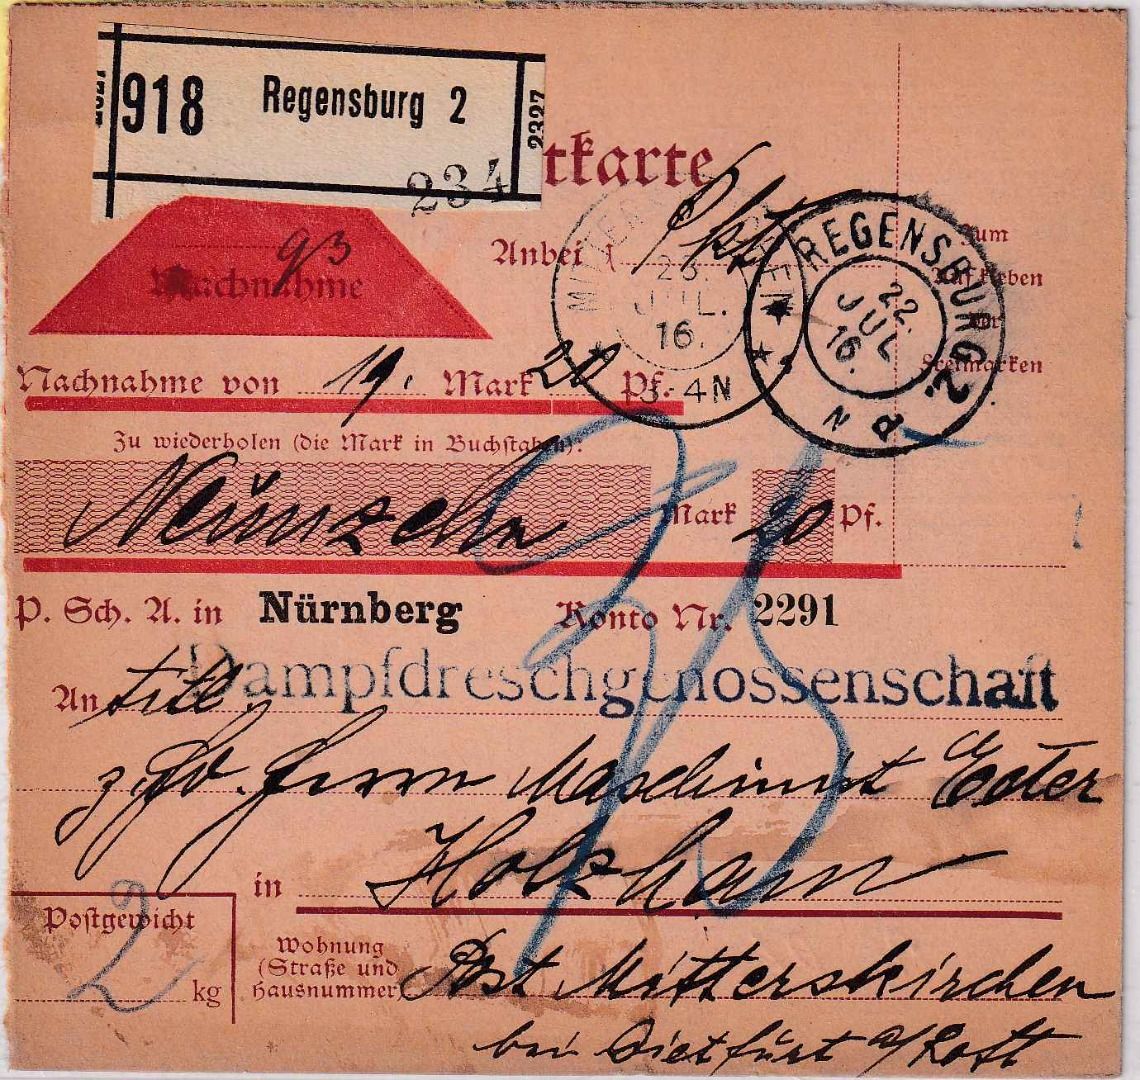 918 Regensburg 2 2327
234
tkarte
93
Nachnahme
Anbei 1 Pkt
Zum
Aufkleben
der
Freimarken
MITTERSKIRCHEN
23.
JUL.
16.
3-4N
REGENSBURG 2.
22.
JUL
16.
N
Nachnahme von 19. Mark 20 Pf.
Zu wiederholen (die Mark in Buchstaben):
Neunzehn Mark 20 Pf.
P. Sch. A. in Nürnberg Konto Nr. 2291
Dampfdreschgenossenschaft
An titl.
z. Hd. Herrn Maschinist Eder
in Holzham
35
Postgewicht
2 kg
Wohnung
(Straße und
Hausnummer)
Post Mitterskirchen
bei Dietfurt a/Rott